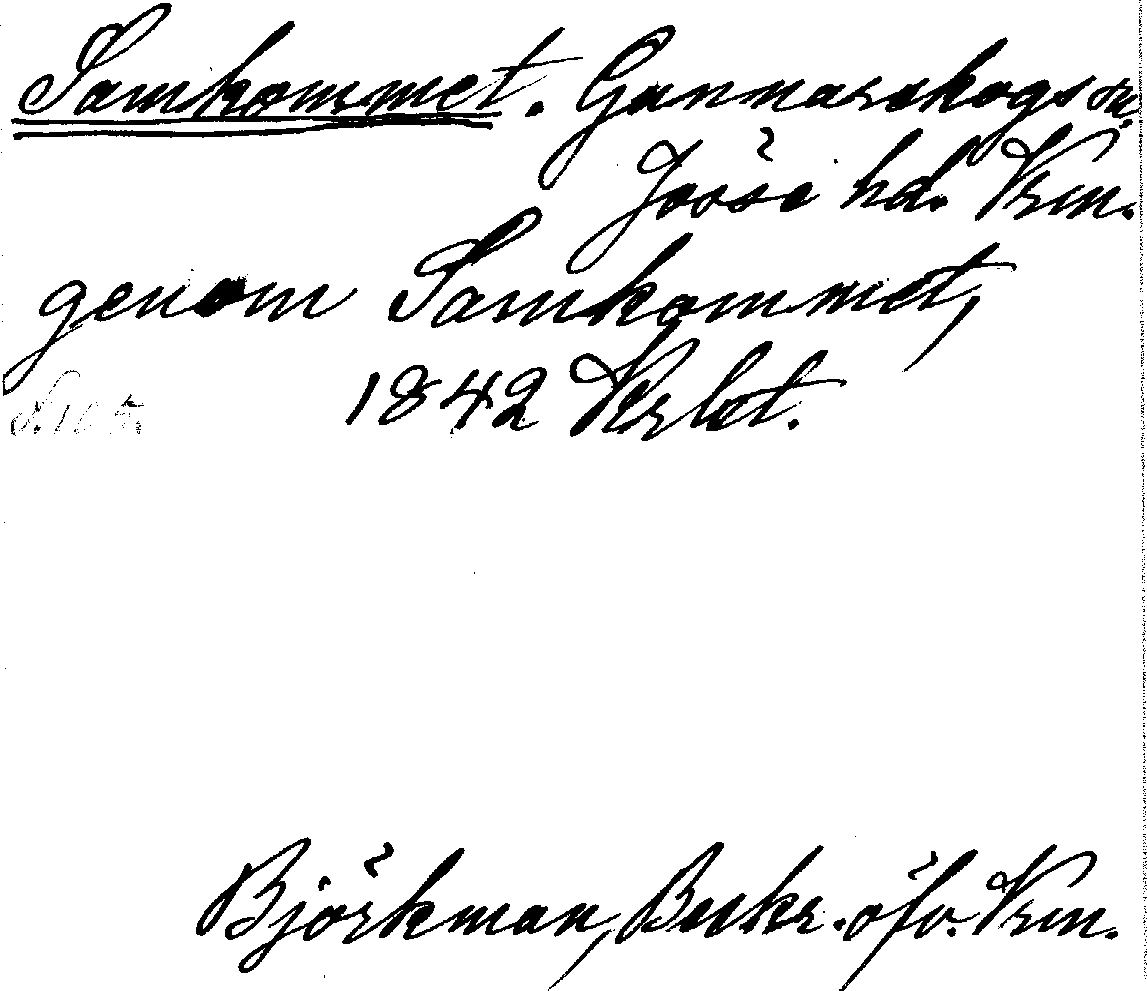 Samkommet. Gunnarskogs sn.
Jösse hd. Vrm.
genom Samkommet,
1842
Björkman, Beskr. öfv. Vrm.